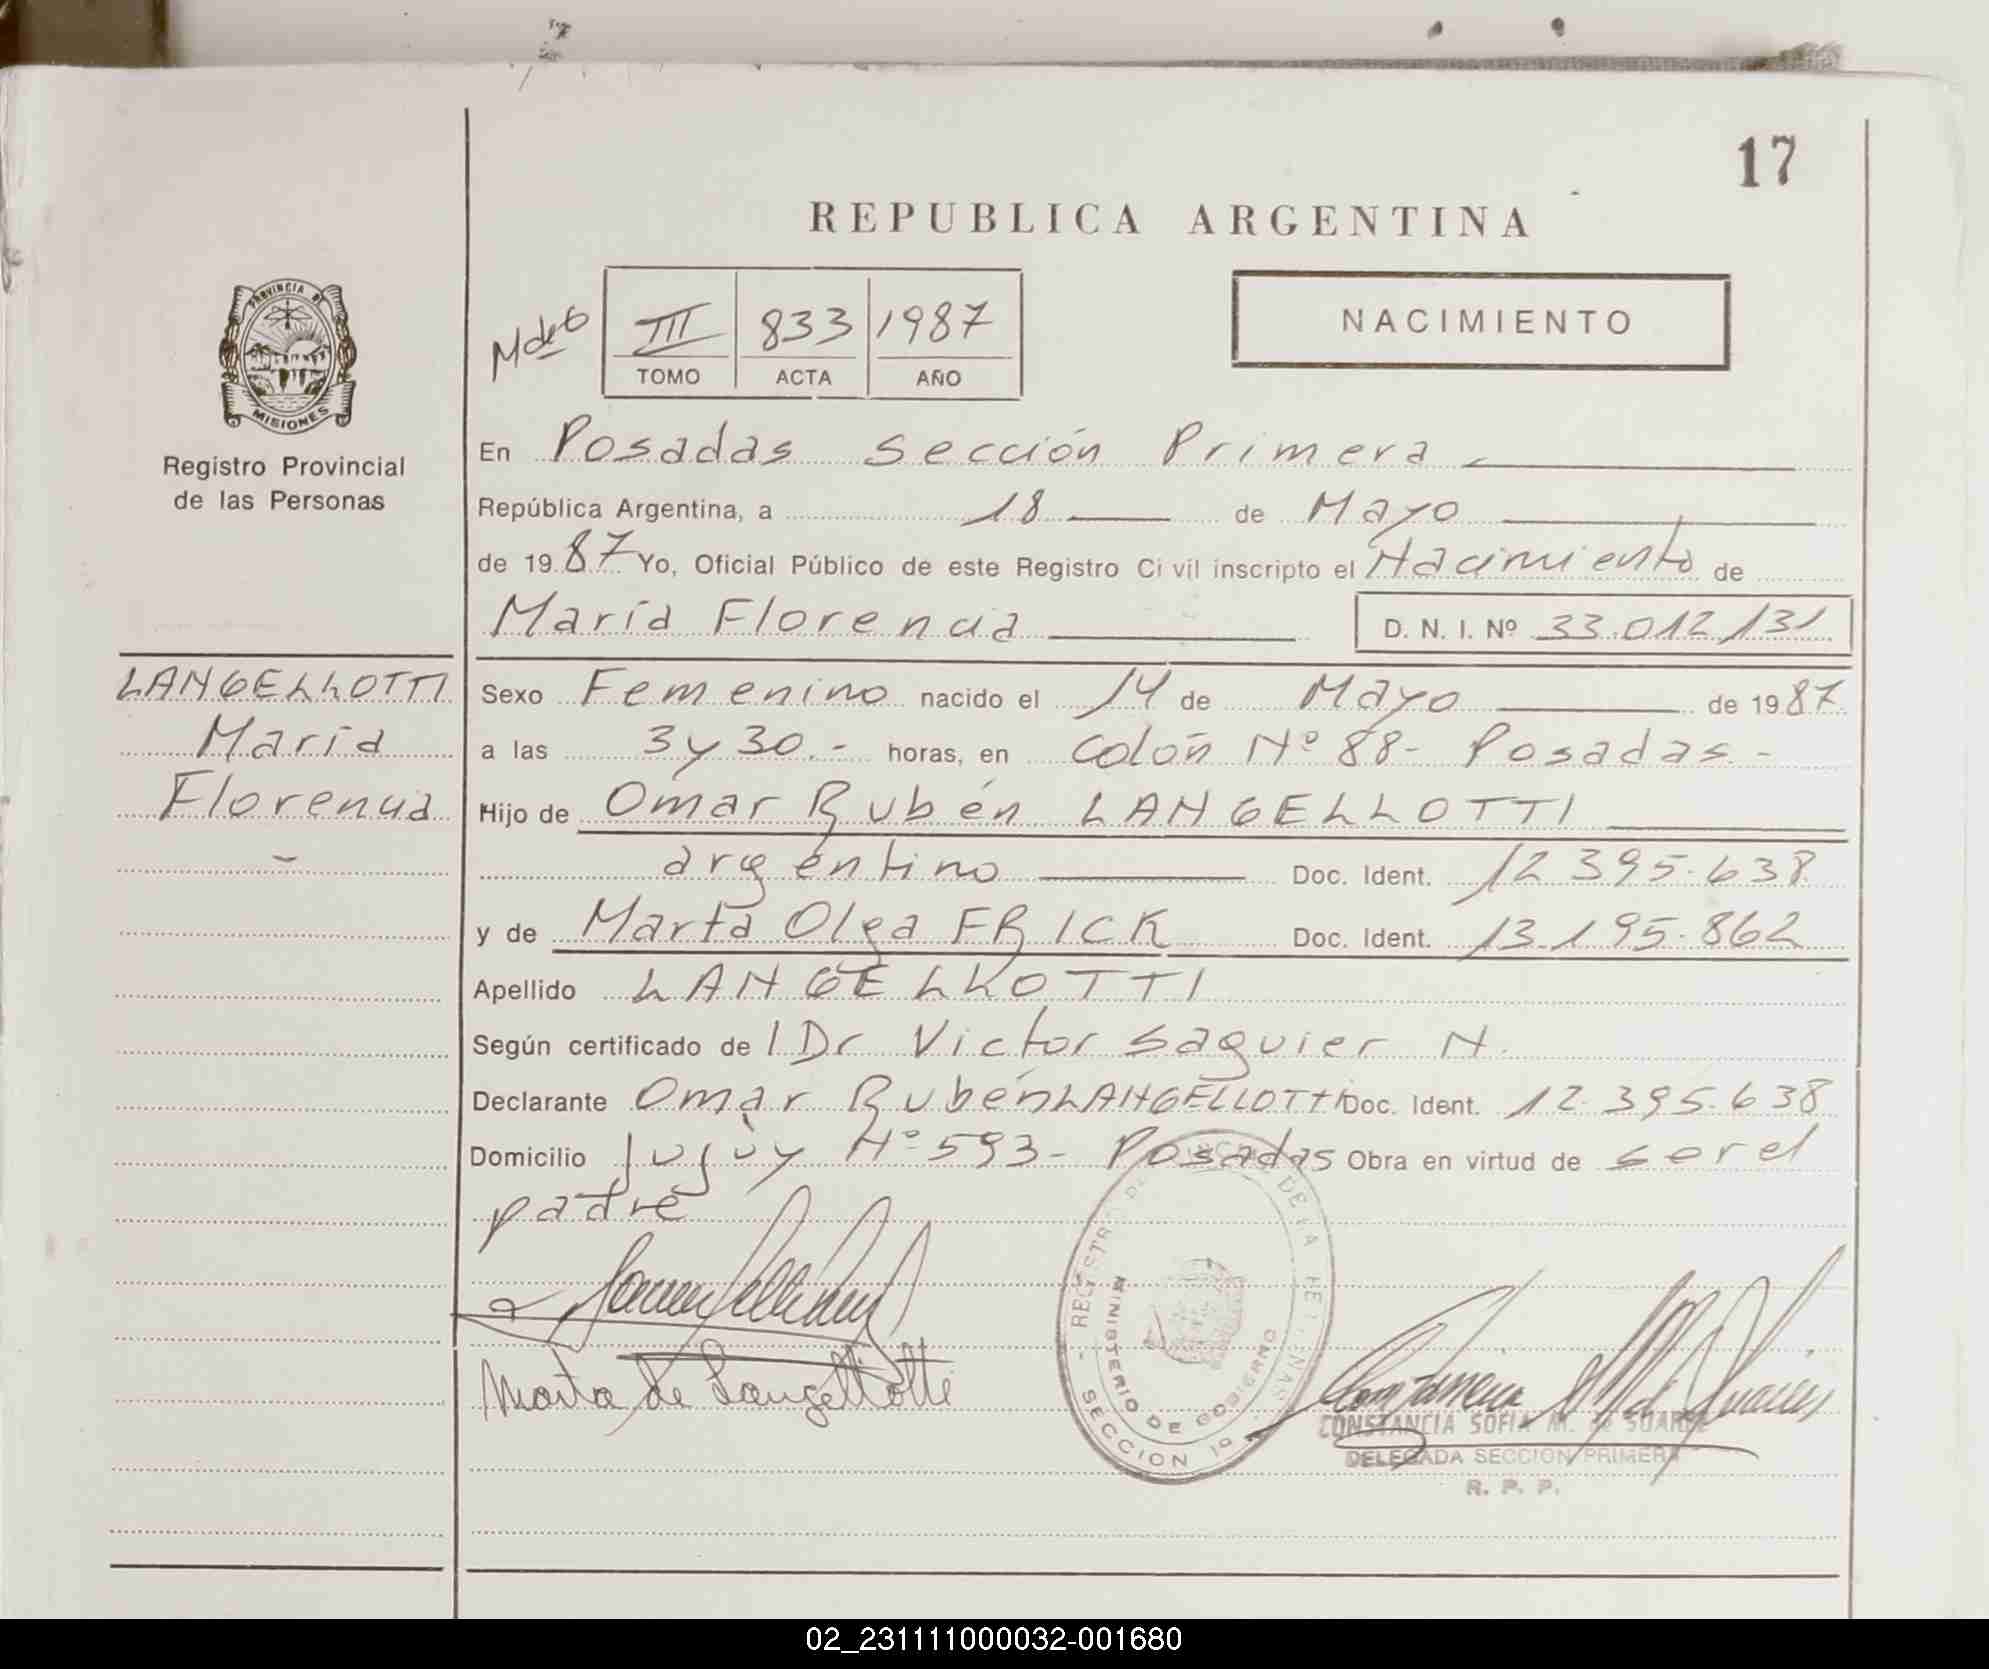 17
REPUBLICA ARGENTINA
PROVINCIA DE
MISIONES
Registro Provincial
de las Personas
III 833 1987
TOMO ACTA AÑO
NACIMIENTO
En Posadas Sección Primera
República Argentina, a 18 de Mayo
de 1987 Yo, Oficial Público de este Registro Civil inscripto el Nacimiento de
María Florencia D. N. I. Nº 33.012.131
LANGELLOTTI
María
Florencia
Sexo Femenino nacido el 14 de Mayo de 1987
a las 3 y 30.- horas, en Colón Nº 88- Posadas.-
Hijo de Omar Rubén LANGELLOTTI
argentino Doc. Ident. 12.395.638
y de Marta Olga FRICK Doc. Ident. 13.195.862
Apellido LANGELLOTTI
Según certificado de l Dr Victor Saguier N.
Declarante Omar Rubén LANGELLOTTI Doc. Ident. 12.395.638
Domicilio Jujuy Nº 593- Posadas Obra en virtud de ser el
padre
Marta de Langellotti
MINISTERIO DE GOBIERNO
SECCION 1a
CONSTANCIA SOFIA M. de SUAREZ
DELEGADA SECCION PRIMERA
R. P. P.
02_231111000032-001680